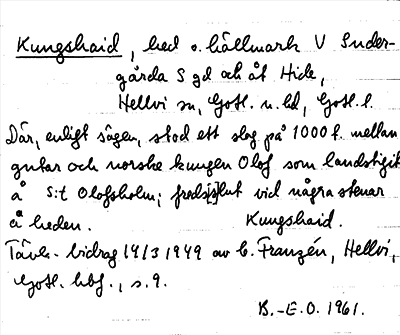 Kungshaid, hed o. hällmark V Suder-
gårda S gd och åt Hide,
Hellvi sn, Gotl. n. hd, Gotl. l.
Där, enligt sägen, stod ett slag på 1000 t. mellan
gutar och norske kungen Olof som landstigit
å S:t Olofsholm; fredsslut vid några stenar
å heden. Kungshaid.
Tävl.-bidrag 14/3 1949 av C. Franzén, Hellvi,
Gotl. hbf., s. 9.
B.-E.O. 1961.